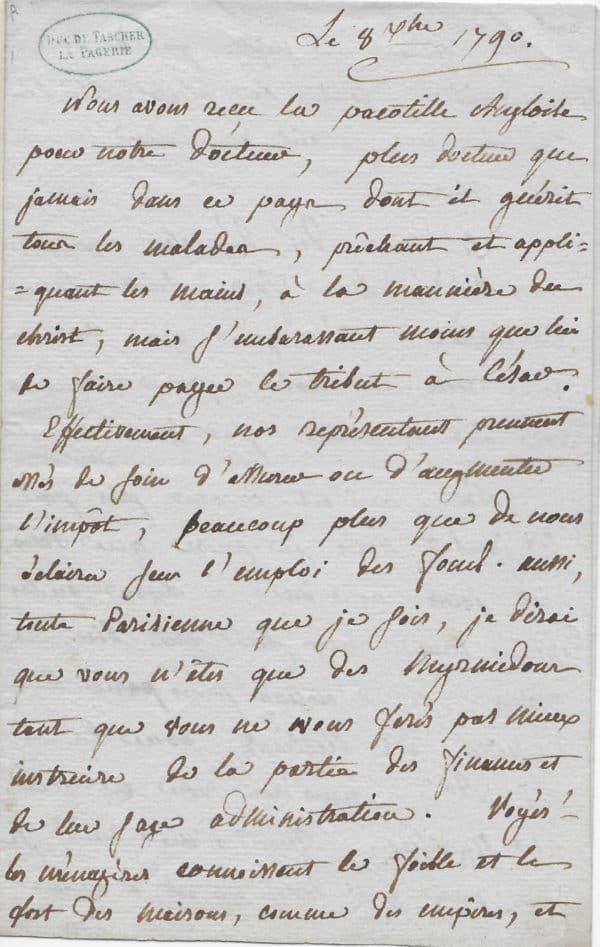 DUC DE TASCHER
LA PAGERIE
Le 8 xbre 1790.
Nous avons recu la pacotille Angloise
pour notre docteur, plus docteur que
jamais dans ce pays dont il guérit
tous les malades, prêchant et appli=
=quant les mains, à la mannière du
christ, mais s'embarassant moins que lui
de faire payer le tribut à César.
Effectivement, nos représentans prennent
assés de soin d'assurer ou d'augmenter
l'impôt, beaucoup plus que de nous
éclairer sur l'emploi des fonds. aussi,
toute Parisienne que je sois, je dirai
que vous n'êtes que des Myrmidons
tant que vous ne nous ferés pas mieux
instruire de la partie des finances et
de leur sage administration. Voyés-
les ménagères connoissent le foible et le
fort des maisons, comme des empires, et